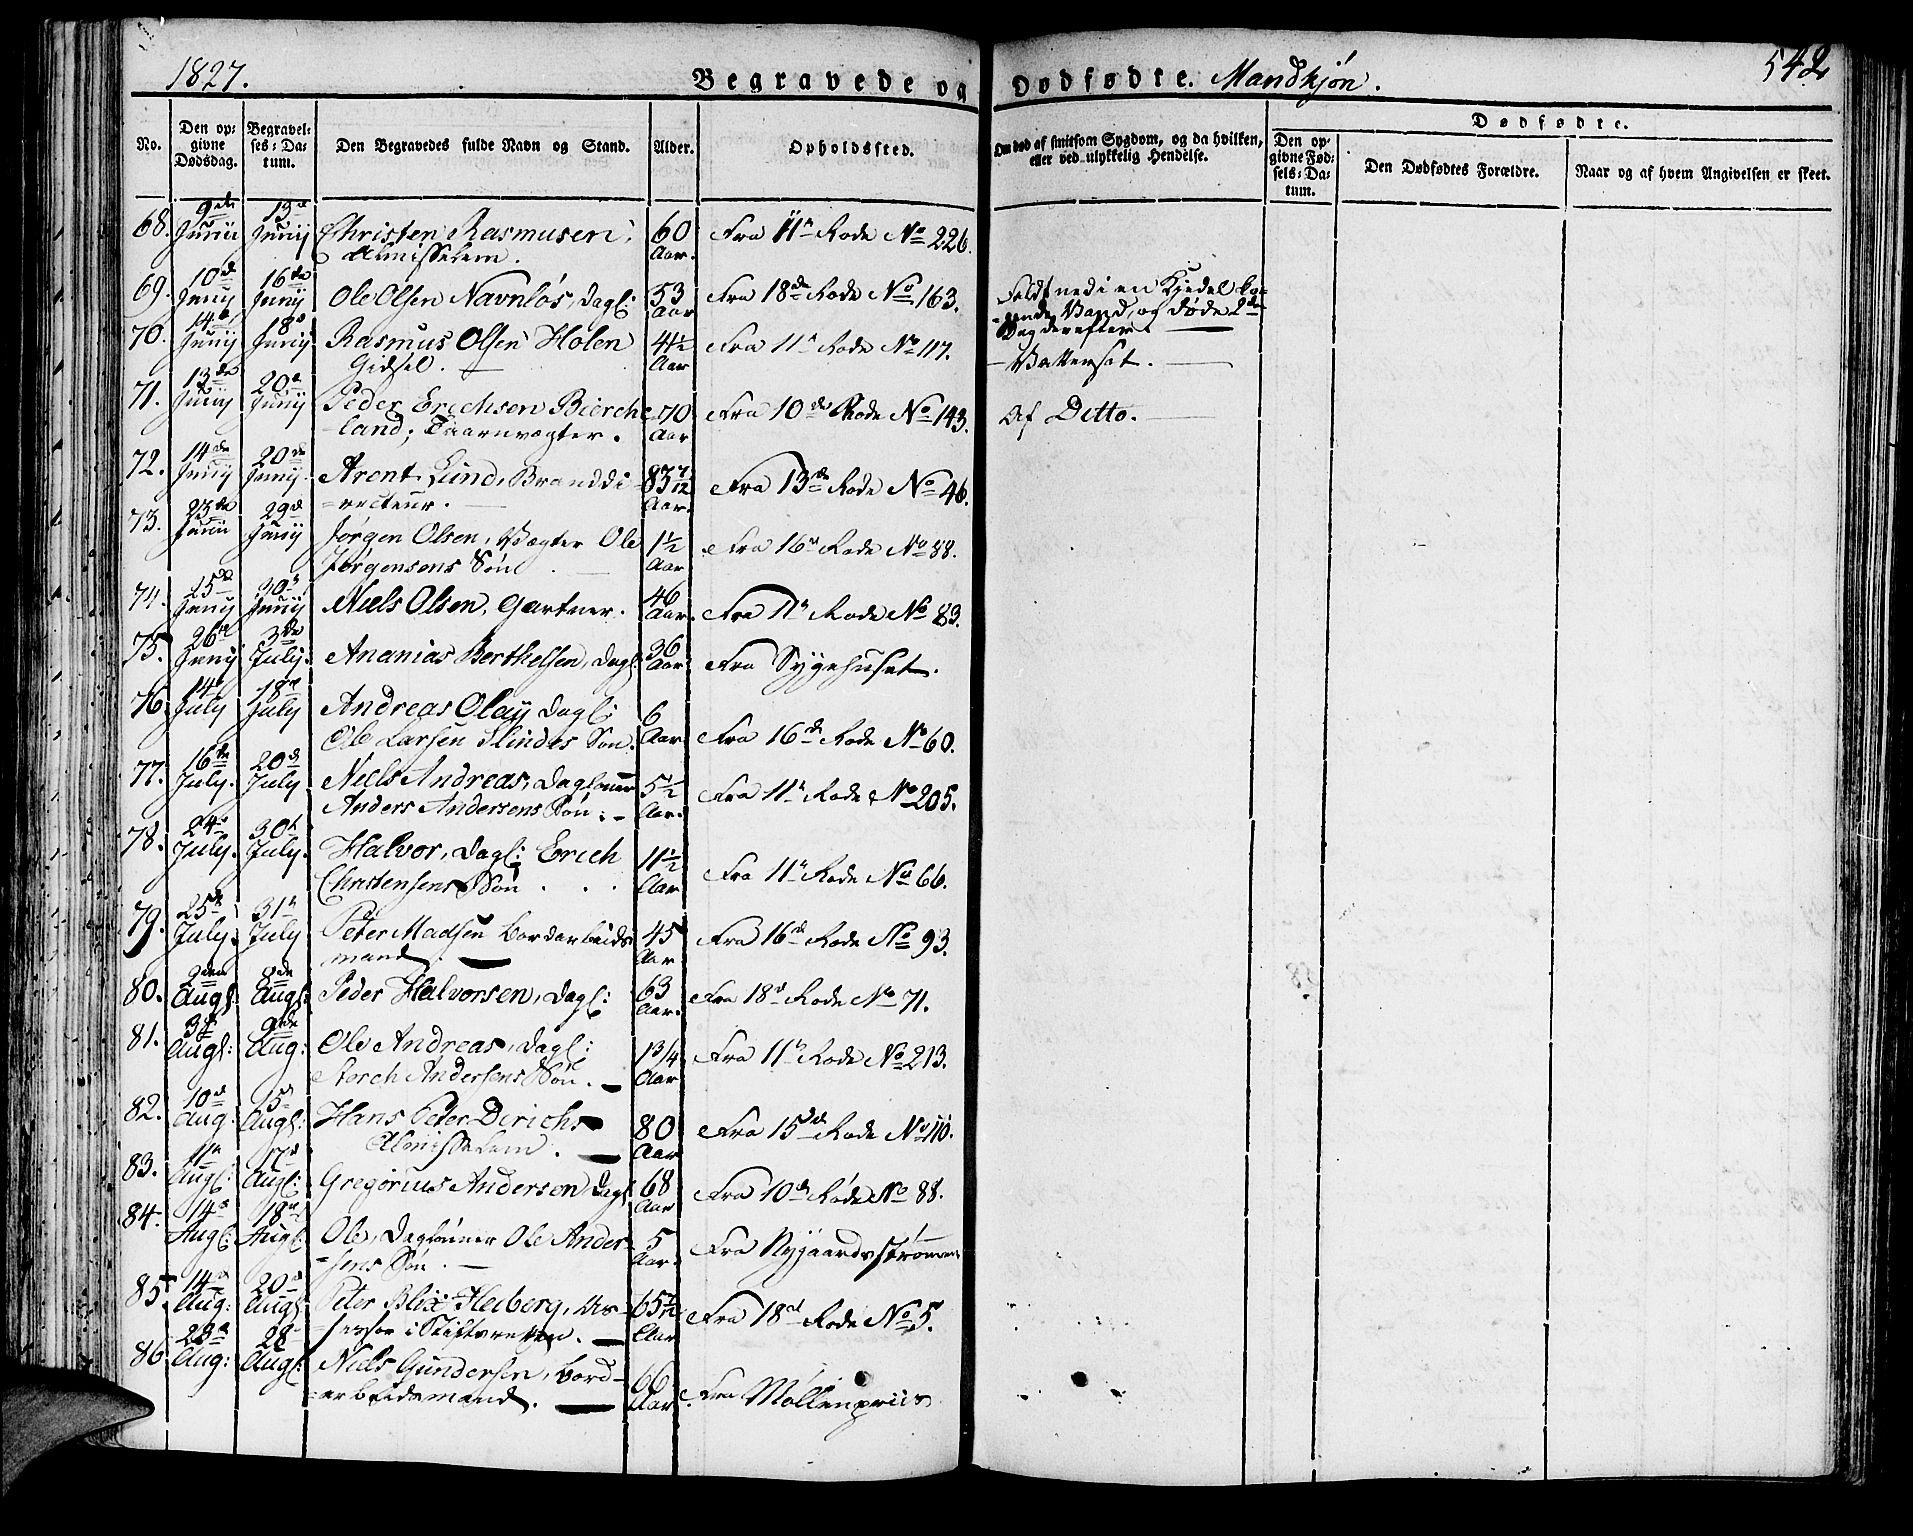 1827.
Begravede og Dødfødte. Mandkjön.
542
No.
Den opgivne Dødsdag.
Begravelses-Datum.
Den Begravedes fulde Navn og Stand.
Alder.
Opholdssted.
Om død af smitsom Sygdom, og da hvilken, eller ved ulykkelig Hendelse.
Dødfødte.
Den opgivne Fødsels-Datum.
Den Dødfødtes Forældre.
Naar og af hvem Angivelsen er skeet.
68. 9de Junii 13de Junij Christen Rasmusen, 60 Aar. Fra 11te Rode No 226.
Almisselem.
69. 10de Junij 16de Junij Ole Olsen Navnløs, Dagl: 53 Aar Fra 18de Rode No 163. Faldt ned i en Kjedel kogende Vand, og døde 2de Dag derefter.
70. 14de Junij 18de Junij Rasmus Olsen Holen 4½ Aar Fra 11te Rode No 117. Vattersot.
Gidsel.
71. 13de Junij 20de Junij Peder Erichsen Bierche 70 Aar Fra 10de Rode No 143. Af Ditto.
land, Taarnvægter.
72. 14de Junij 20de Junij Arent Lund, Branddi- 83 7/12 Aar. Fra 13de Rode No 46.
=recteur.
73. 23de Junii 29de Junij Jørgen Olsen, Vægter Ole 1½ Aar Fra 16de Rode No 88.
Jørgensens Søn
74. 25de Junij 30te Junij Niels Olsen, Gartner. 46 Aar. Fra 11te Rode No 83.
75. 26de Junij 3de July. Ananias Berthelsen, Dagl: 36 Aar Fra Sygehuset.
76. 14de July 18de July Andreas Olaij Dagl: 6 Aar Fra 16de Rode No 60.
Ole Larsen Slindes Søn.
77. 16de July. 20de July Niels Andreas, Dagløner 5½ Aar. Fra 11te Rode No 205.
Anders Andersens Søn.
78. 24de July. 30te July. Halvor, Dagl: Erich 11½ Aar Fra 11te Rode No 66.
Christensens Søn
79. 25de July. 31te July Peter Madsen Bordarbeids 45 Aar Fra 16de Rode No 93.
mand.
80. 2den Augs: 8de Augs: Peder Halvorsen, Dagl: 63 Aar. Fra 18de Rode No 71.
81. 3de Augs: 9de Aug: Ole Andreas, Dagl: 1 3/4 Aar Fra 11te Rode No 213.
Storch Andersens Søn.
82. 10de Aug: 15de Augs: Hans Peter Derichs 80 Aar Fra 15de Rode No 110.
Almisselem.
83. 11te Augs: 17de Augs: Gregorius Andersen, Dagl: 68 Aar Fra 10de Rode No 88.
84. 14de Augs: 18de Augs: Ole, Dagløner Ole Ander- 5 Aar. Fra Nygaardsstrømmen
=sens Søn.
85. 14de Aug: 20de Augs: Peter Blix Heiberg, As- 65 7/12 Aar Fra 18de Rode No 5.
=sessor i Stiftsretten.
86 23de Aug: 28 Augs: Niels Gundersen, Bord- 66 Aar. Fra Møllenpriis
=arbeidsmand.